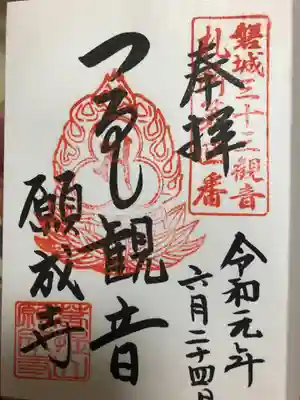 磐城三十三観音
奉拝
つるし観音
願成寺
令和元年
六月二十四日